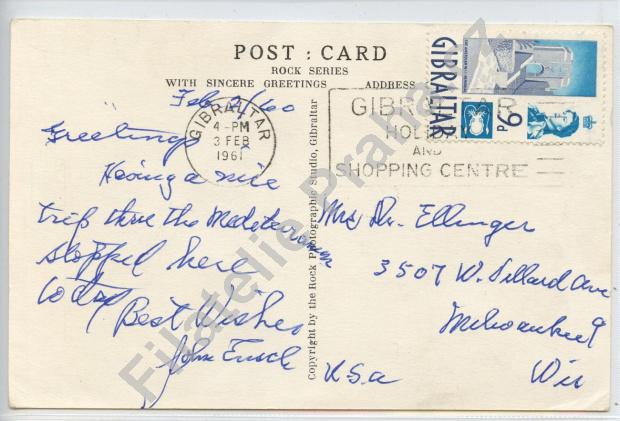 POST : CARD
ROCK SERIES
WITH SINCERE GREETINGS
ADDRESS
Feb 2/60
Greetings
Having a nice
trip thru the Mediterranean
stopped here
today
Best Wishes
John
GIBRALTAR
4-PM
3 FEB
1961
GIBRALTAR
HOLIDAY
AND
SHOPPING CENTRE
GIBRALTAR
6D
Copyright by the Rock Photographic Studio, Gibraltar
Mrs Dr. Ellinger
3507 W. Ave
Milwaukee 9
Wis
U.S.a
Filatelie Praha